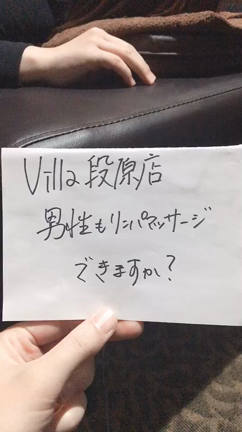 Villa段原店
男性もリンパマッサージ
できますか?